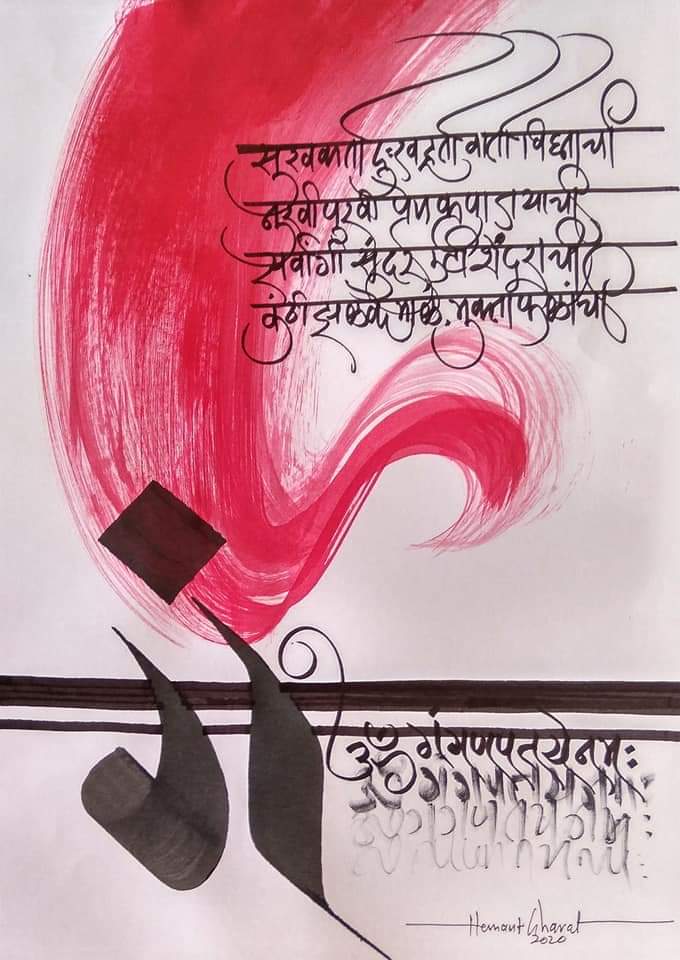 सुखकर्ता दुःखहर्ता वार्ता विघ्नाची
नुरवी पुरवी प्रेम कृपा जयाची
सर्वांगी सुंदर उटी शेंदुराची
कंठी झळके माळ मुक्ताफळांची
गं
ॐ गं गणपतये नमः
Hemant Gharat
2020